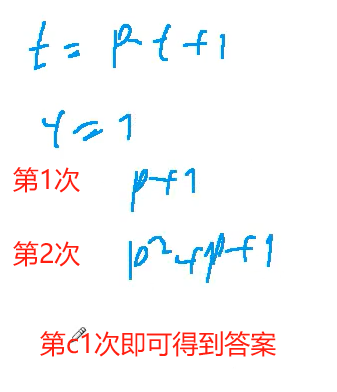 t = p t + 1
t = 1
第1次 p+1
第2次 p²+p+1
第c1次即可得到答案